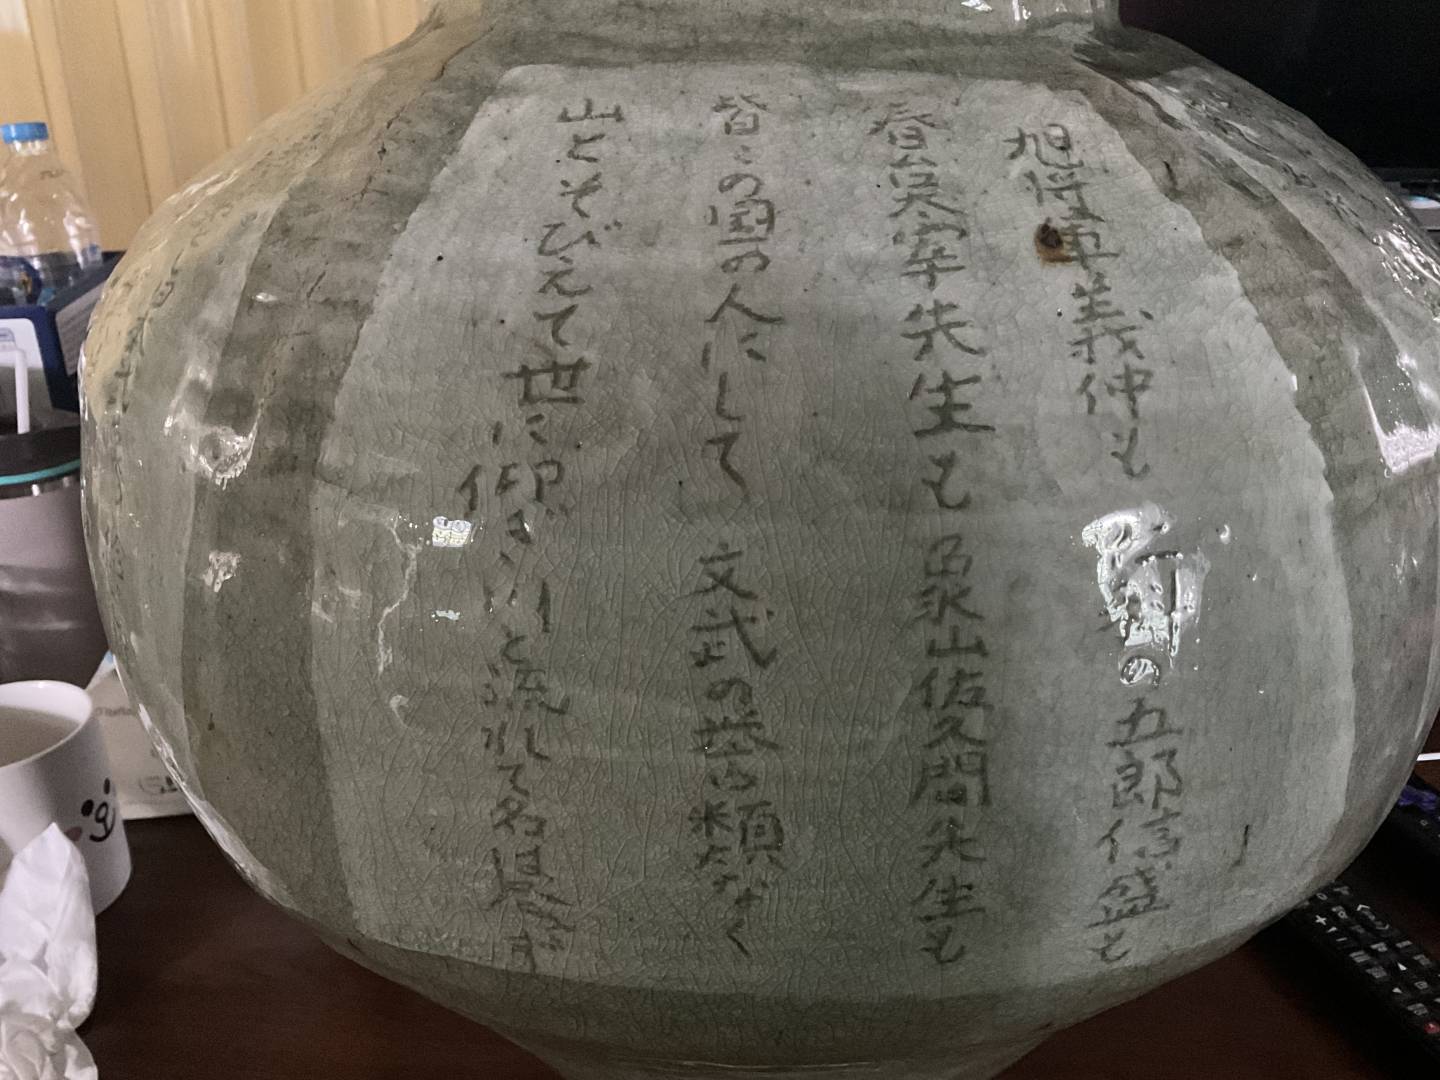 旭将軍義仲も 五郎信盛も
春台太宰先生も 象山佐久間先生も
皆この国の人にして 文武の誉類なく
山とそびえて世に仰ぎ 川と流れて名は尽ず